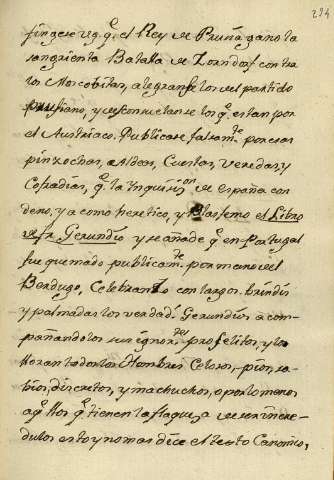 294
fingese vg. q.e el Rey de Prusia ganó la
sangrienta Batalla de Zorndorf contra
los Moscobitas, alegranse los del partido
prusiano, y desconsuelanse los q.e estan por
el Austriaco. Publicase falsam.te por esas
pinzochas, Aldeas, Cuestas, veredas, y
Cofadias, q.e la Inquisi.on de España con
deno, ya como heretico, y Blasfemo el Libro
de fr. Gerundio y se añade q.e en Portugal
fue quemado publicam.te por mano del
Berdugo, Celebranlo con largos brindis
y palmadas los verdad.s Gerundios acom-
pañandolos sus ignor.tes profelitos, y lo
lloran todos los Hombres Celosos, pios, sa-
bios, discretos, y machuchos, o por lo menos
aq.llos q.e tienen la flaqueza de ser incre-
dulos esto y no mas dice el texto Canonico,